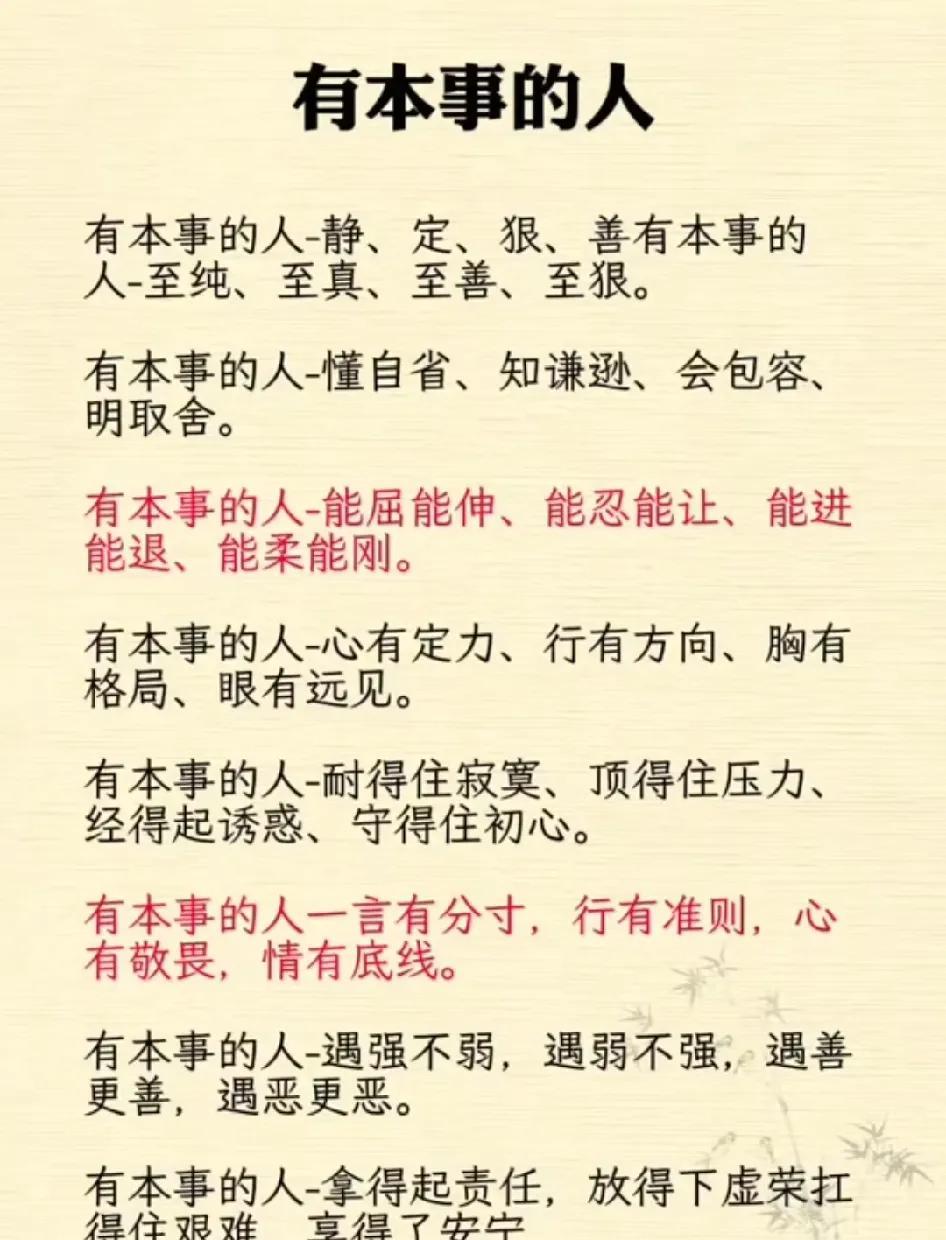 有本事的人
有本事的人-静、定、狠、善有本事的
人-至纯、至真、至善、至狠。
有本事的人-懂自省、知谦逊、会包容、
明取舍。
有本事的人-能屈能伸、能忍能让、能进
能退、能柔能刚。
有本事的人-心有定力、行有方向、胸有
格局、眼有远见。
有本事的人-耐得住寂寞、顶得住压力、
经得起诱惑、守得住初心。
有本事的人一言有分寸,行有准则,心
有敬畏,情有底线。
有本事的人-遇强不弱,遇弱不强,遇善
更善,遇恶更恶。
有本事的人-拿得起责任,放得下虚荣扛
得住艰难、享得了安宁